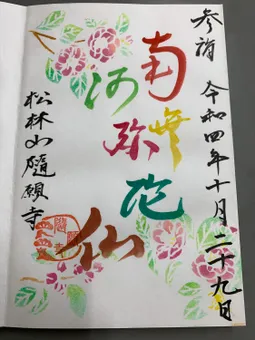 参詣 令和四年十月二十九日
南無
阿弥陀
仏
松林山隨願寺